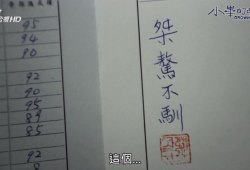 灣HD
小畢的
95
94
90
92
90
95
89
85
92
桀驁不馴
這個...